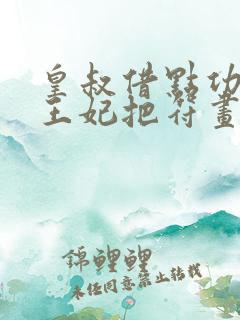 皇叔借點功
王妃把符畫
錦鯉鯉
未經同意禁止轉載